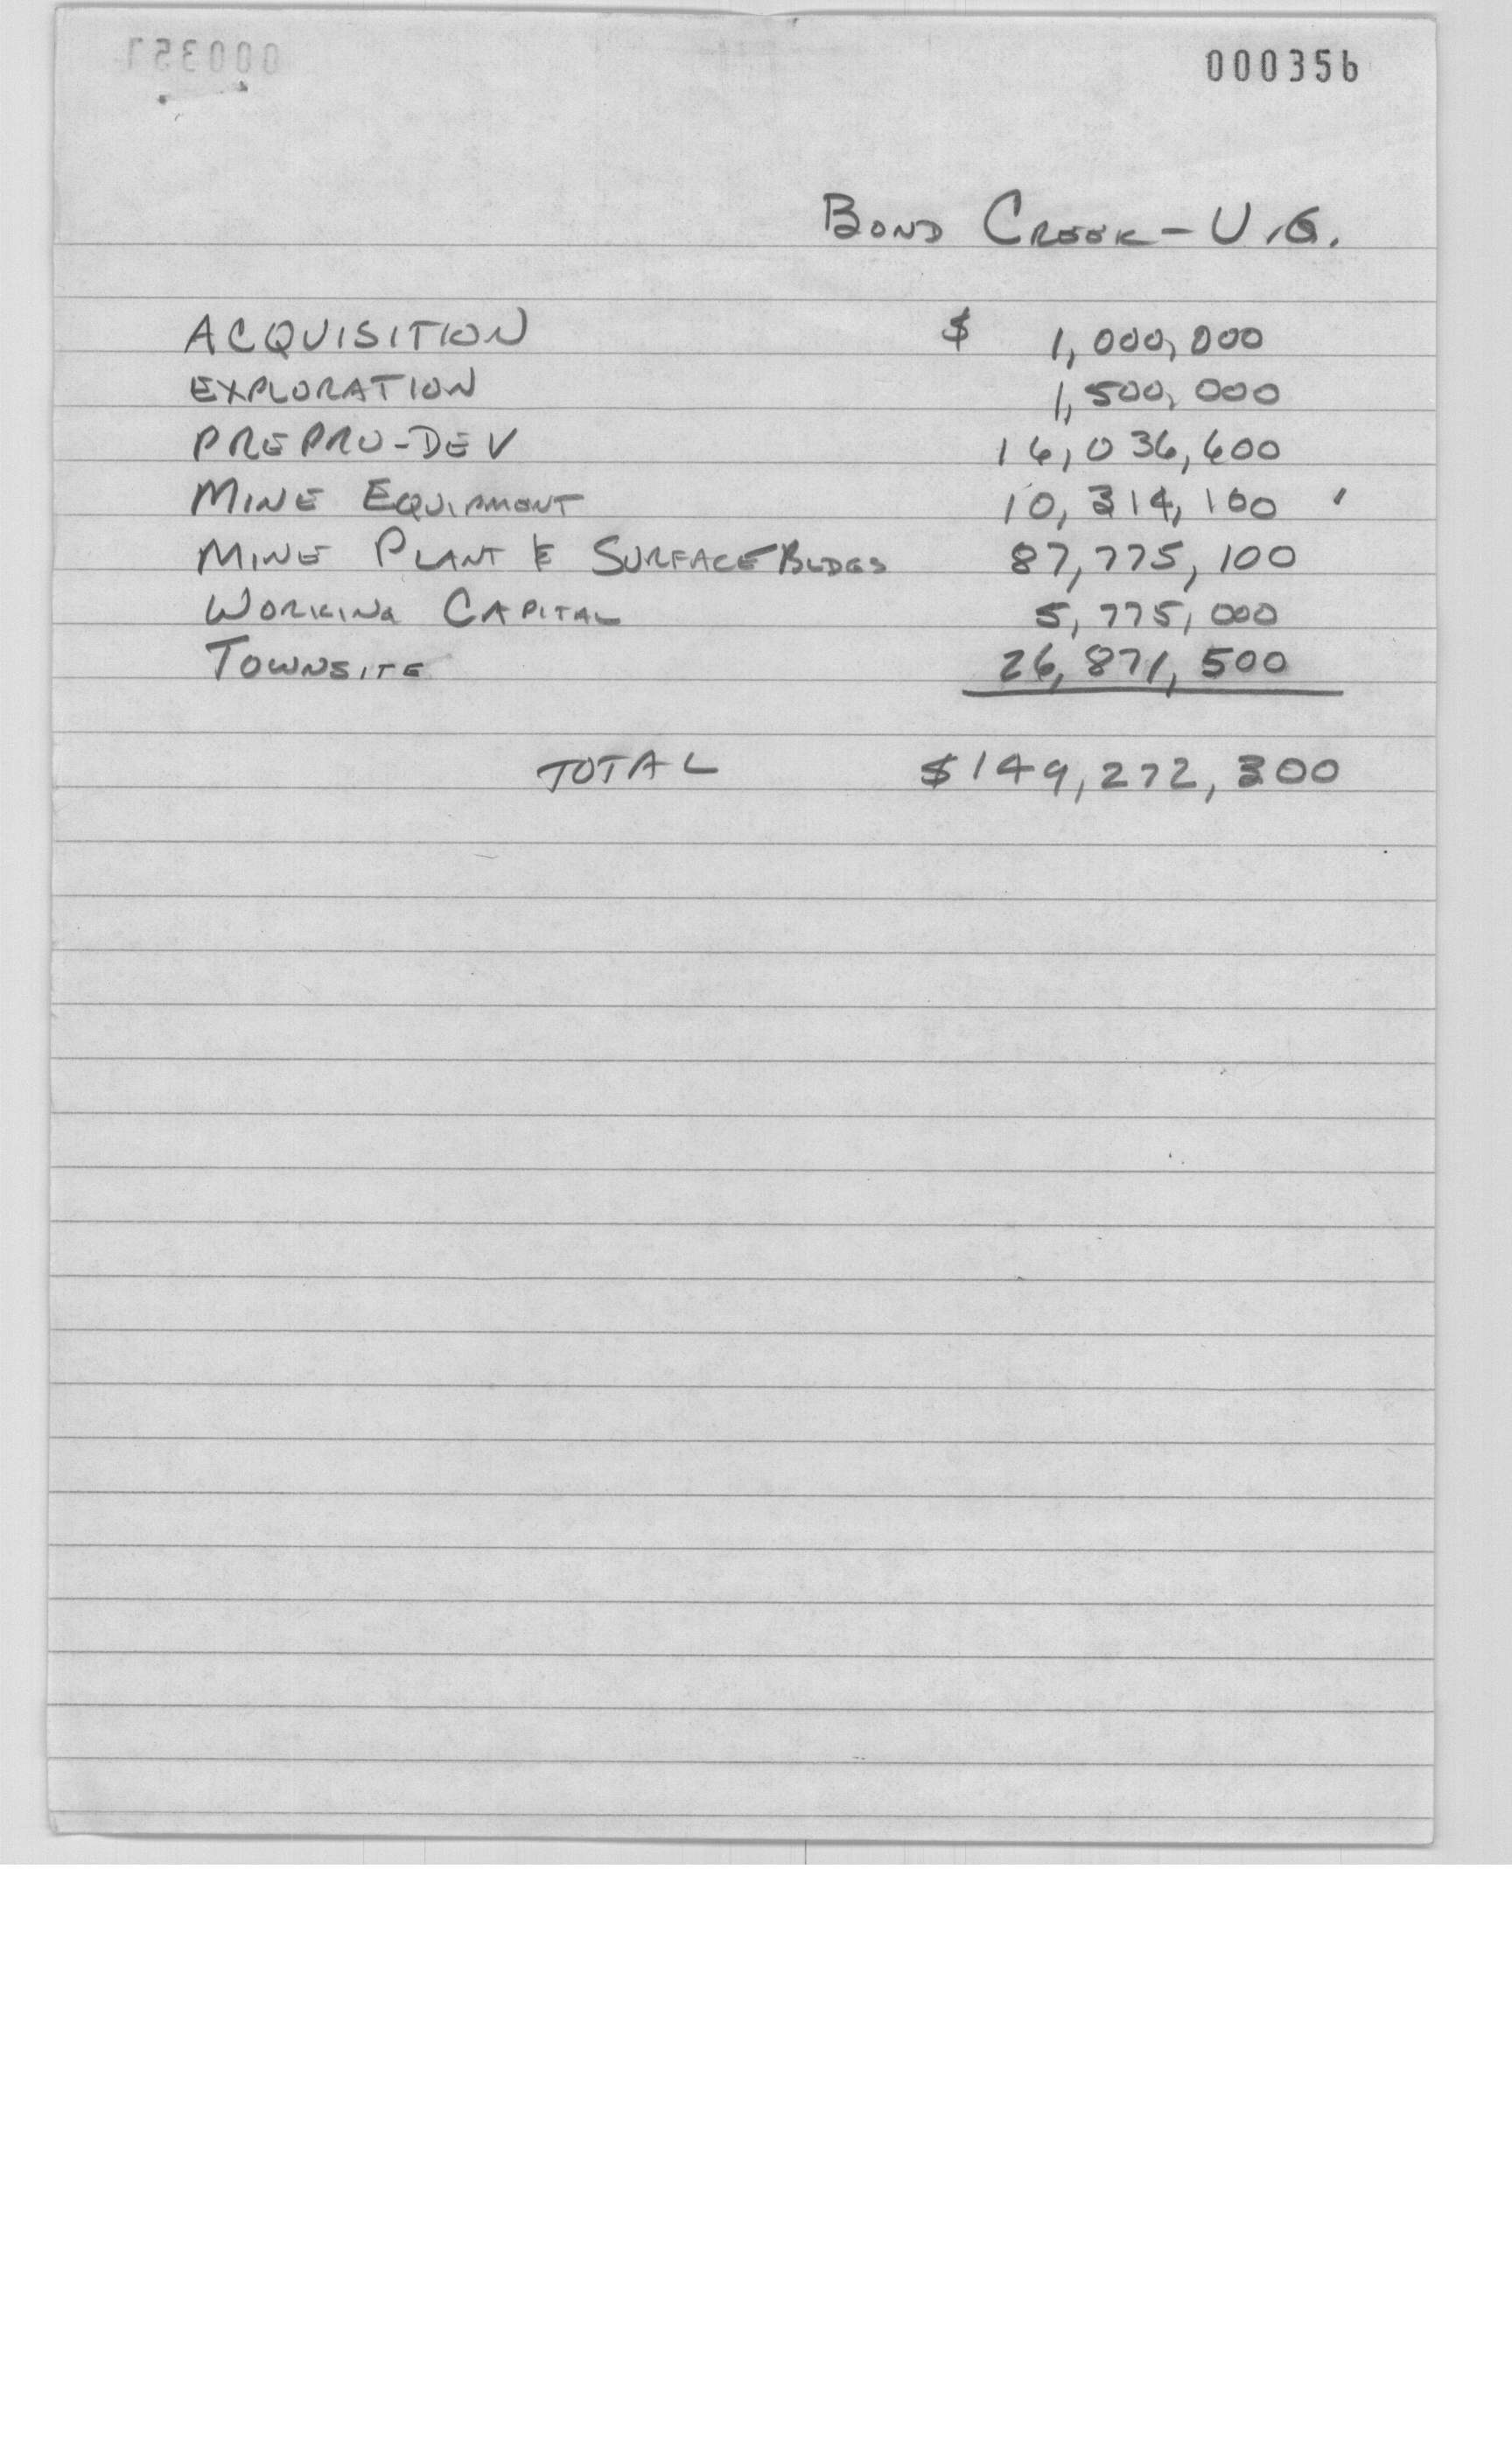 000357
000356
BOND CREEK - U.G.
ACQUISITION $ 1,000,000
EXPLORATION 1,500,000
PREPRO-DEV 16,036,600
MINE EQUIPMENT 10,314,100
MINE PLANT & SURFACE BLDGS 87,775,100
WORKING CAPITAL 5,775,000
TOWNSITE 26,871,500
TOTAL $149,272,300